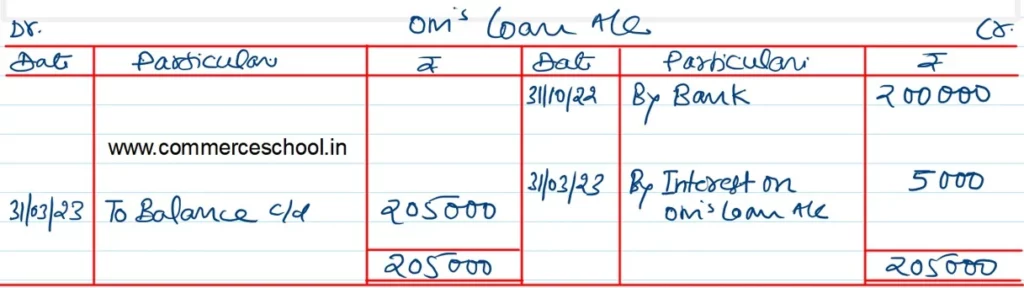 Dr. Om's Loan A/c Cr.
Date Particulars ₹ Date Particulars ₹
31/10/22 By Bank 200000
www.commerceschool.in
31/03/23 By Interest on 5000
31/03/23 To Balance c/d 205000 Om's Loan A/c
205000 205000